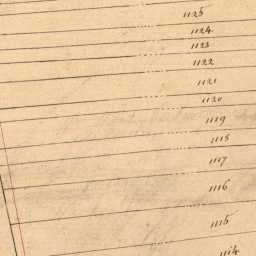 1125
1124
1123
1122
1121
1120
1119
1118
1117
1116
1115
1114